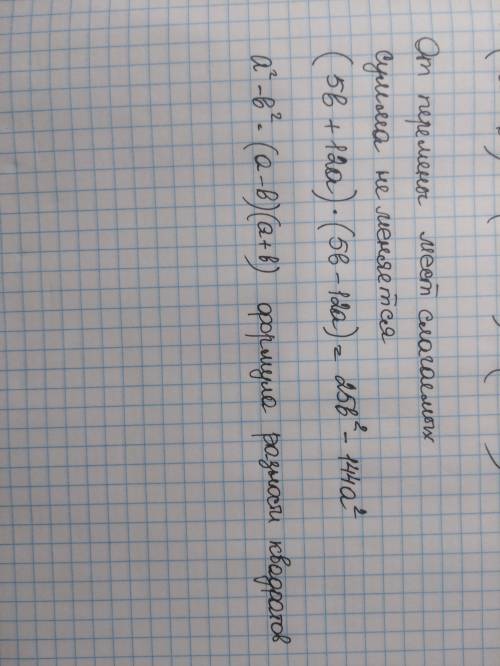 От перемены мест слагаемых
сумма не меняется
(5b + 12a) · (5b - 12a) = 25b² - 144a²
a² - b² = (a - b)(a + b) формула разности квадратов